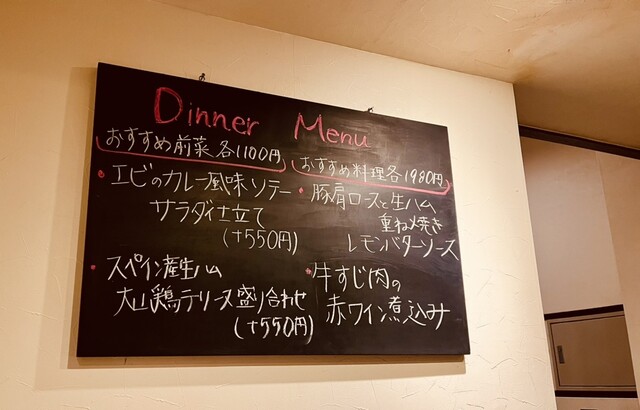 Dinner Menu
おすすめ前菜各1100円
・エビのカレー風味ソテー
サラダ仕立て
(+550円)
・スペイン産生ハム
大山鶏テリーヌ盛り合わせ
(+550円)
おすすめ料理各1980円
・豚肩ロースと生ハム
重ね焼き
レモンバターソース
・牛すじ肉の
赤ワイン煮込み